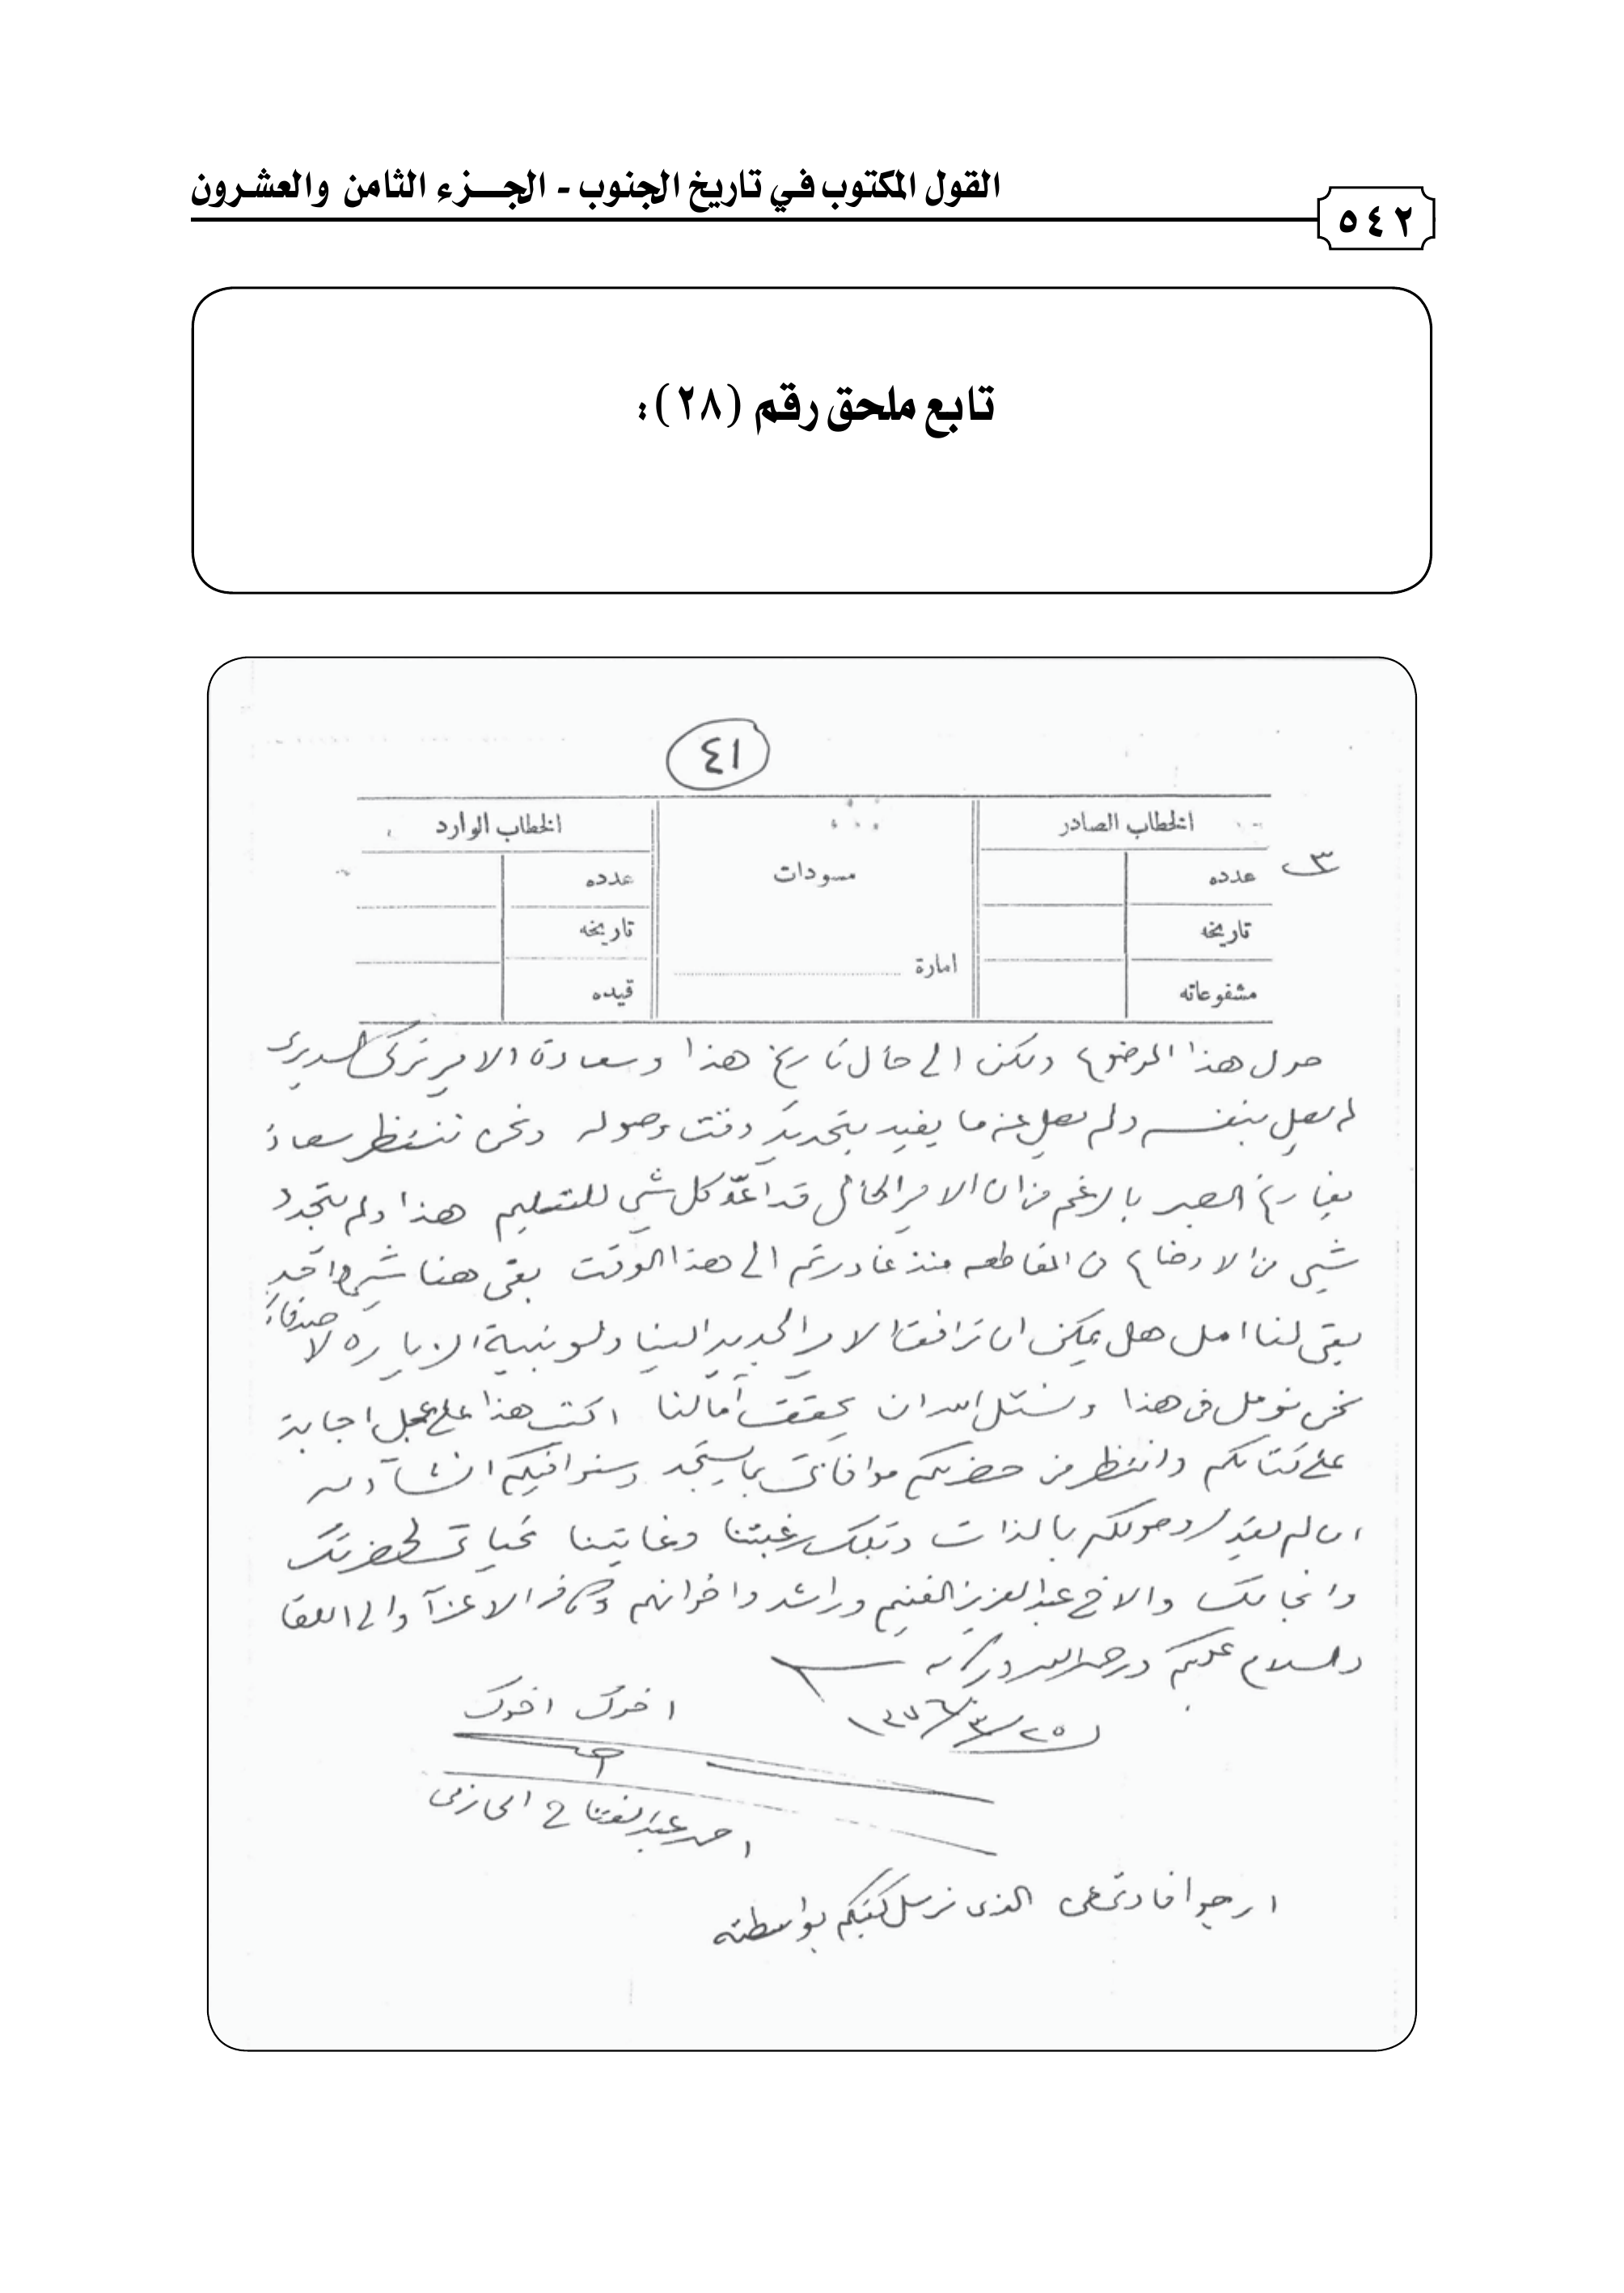 القول المكتوب في تاريخ الجنوب - الجزء الثامن والعشرون
٥٤٢
تابع ملحق رقم (٢٨):
٤١
الخطاب الصادر
مسودات
الخطاب الوارد
٣
عدده
عدده
تاريخه
امارة
تاريخه
مشفوعاته
قيده
حول هذا الموضوع ولكن الى حال تاريخ هذا وسعادة الامير تركي السديري
لم يصل بنفسه ولم يصل عنه ما يفيد بتحديد وقت وصوله ونحن ننتظر سعادة
بفارغ الصبر بالرغم من ان الامير الحالي قد اعد كل شي للتسليم هذا ولم يتجدد
شيى من الاوضاع في المقاطعه منذ غادرتم الى هذا الوقت بقي هنا شيى واحد
بقي لنا امل هل يمكن ان ترافق الامير الجديد الينا ولو بنية الزياره لا صدقاء
نحن نومل في هذا ونسئل الله ان يحقق آمالنا اكتب هذا على عجل اجابة
على كتابكم وانتظر من حضرتكم موافاتي بما يستجد وسنوافيكم انشآ الله
ان لم وصولكم بالذات وتلك رغبتنا وغايتنا تحياتي لحضرتك
وانجالك والاخ عبدالعزيز الغنيم وراشد واخوانهم وكافة الاعزآ والى اللقا
والسلام عليكم ورحمة الله وبركاته
٢٥/٣/١٣٧٦
اخوك اخوك
احمد عبدالفتاح الحازمي
ارجوا افادتي عن الذي نرسل كتبكم بواسطته